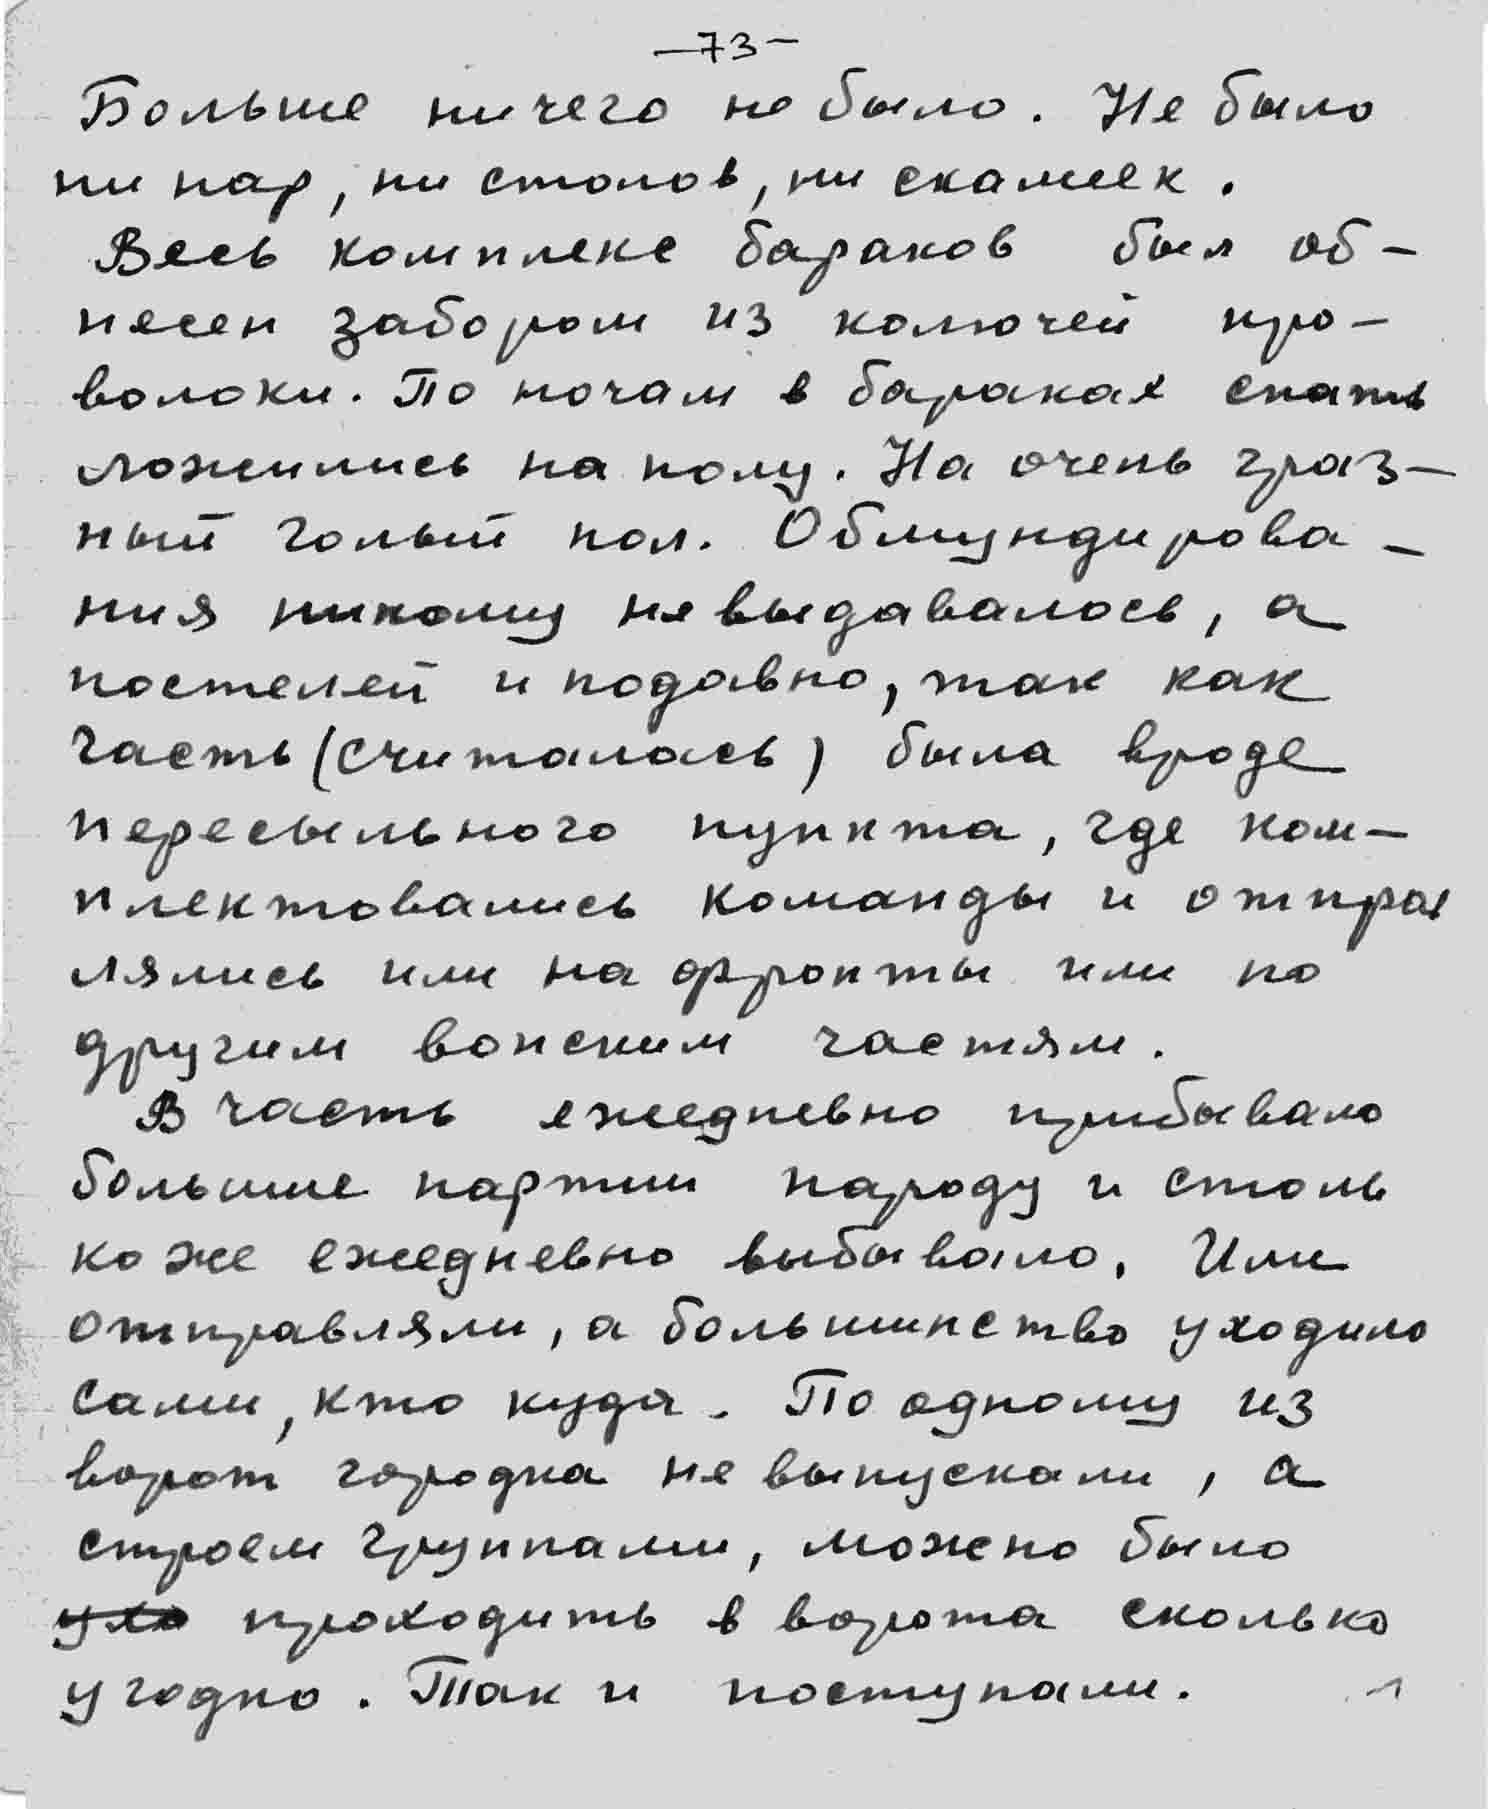 —73—
Больше ничего не было. Не было
ни нар, ни столов, ни скамеек.
Весь комплекс бараков был об-
несен забором из колючей про-
волоки. По ночам в бараках спать
ложились на полу. На очень гряз-
ный голый пол. Обмундирова-
ния никому не выдавалось, а
постелей и подавно, так как
часть (считалась) была вроде
пересыльного пункта, где ком-
плектовались команды и отправ
лялись или на фронты или по
другим воиским частям.
В часть ежедневно прибывало
большие партии народу и столь
ко же ежедневно выбывало. Или
отправляли, а большинство уходило
сами, кто куда. По одному из
ворот городка не выпускали, а
строем группами, можно было
ухо проходить в ворота сколько
угодно. Так и поступали.